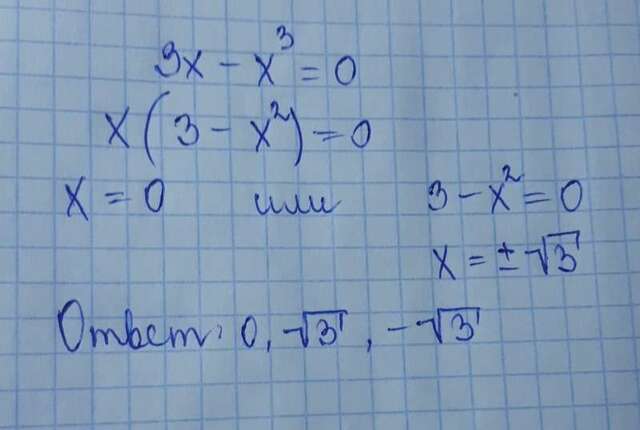 3x - x³ = 0
x(3 - x²) = 0
x = 0 или 3 - x² = 0
x = ±√3
Ответ: 0, √3, -√3